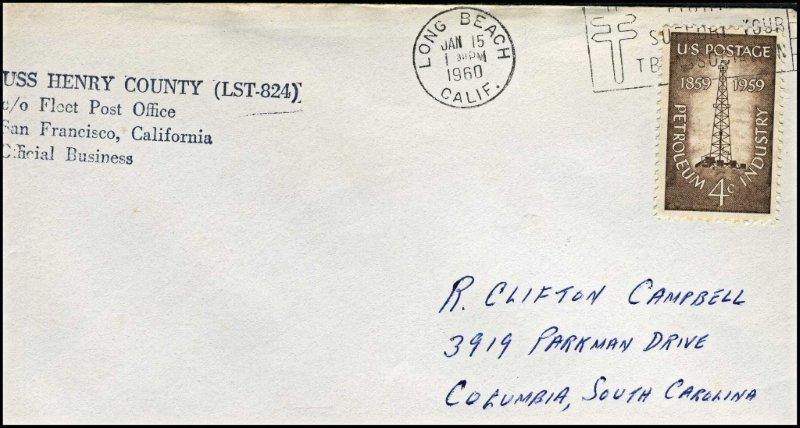 USS HENRY COUNTY (LST-824)
c/o Fleet Post Office
San Francisco, California
Official Business
LONG BEACH
JAN 15
PM
1960
CALIF.
YOUR
TB
U.S. POSTAGE
1859 1959
PETROLEUM INDUSTRY
4¢
R. CLIFTON CAMPBELL
3919 PARKMAN DRIVE
COLUMBIA, SOUTH CAROLINA